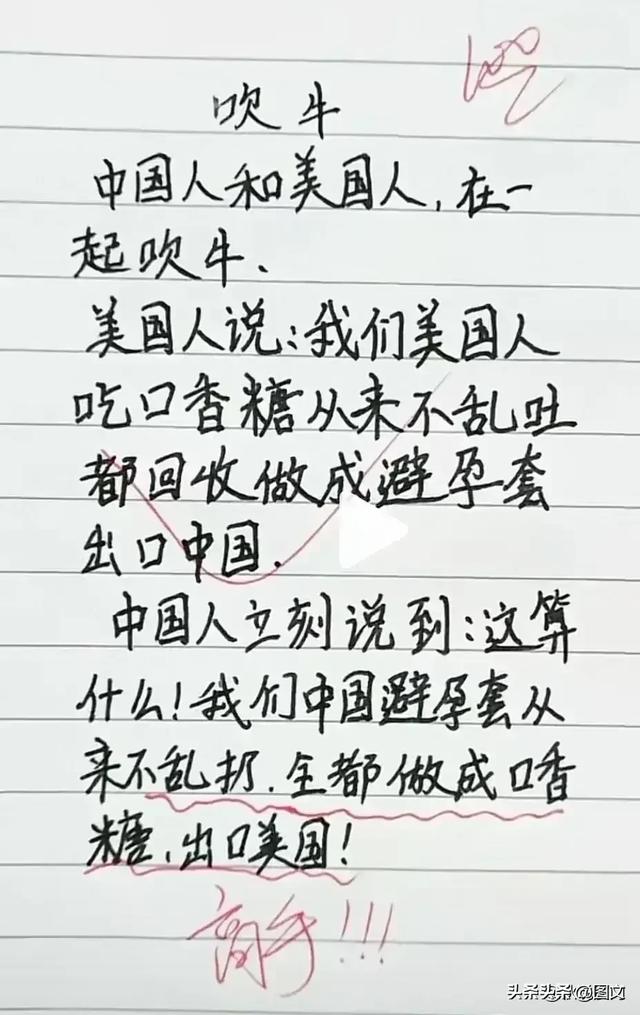 100
吹牛
中国人和美国人,在一
起吹牛.
美国人说:我们美国人
吃口香糖从来不乱吐
都回收做成避孕套
出口中国.
中国人立刻说到:这算
什么!我们中国避孕套从
来不乱扔.全都做成口香
糖.出口美国!
高手!!!
头条头条@图文